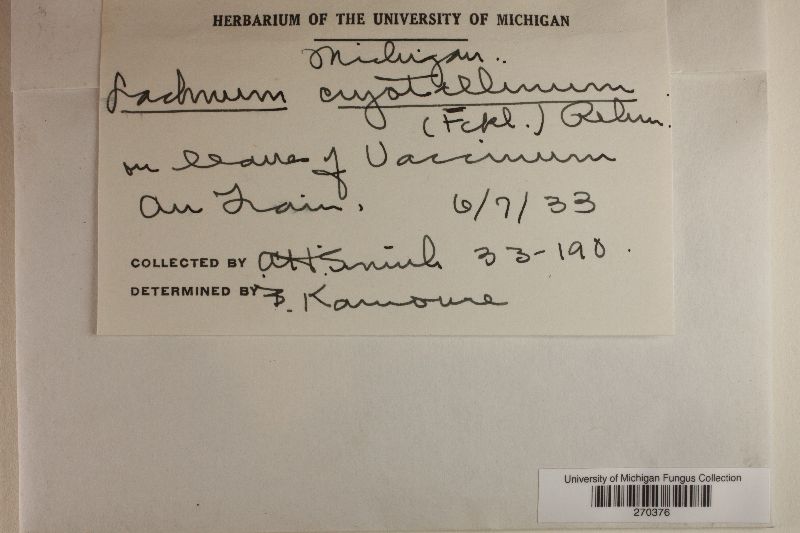 HERBARIUM OF THE UNIVERSITY OF MICHIGAN
Michigan.
Lachnum crystallinum
(Fckl.) Rehm.
on leaves of Vaccinium
Au Train. 6/7/33
COLLECTED BY A.H. Smith 33-190.
DETERMINED BY Kanouse
University of Michigan Fungus Collection
270376